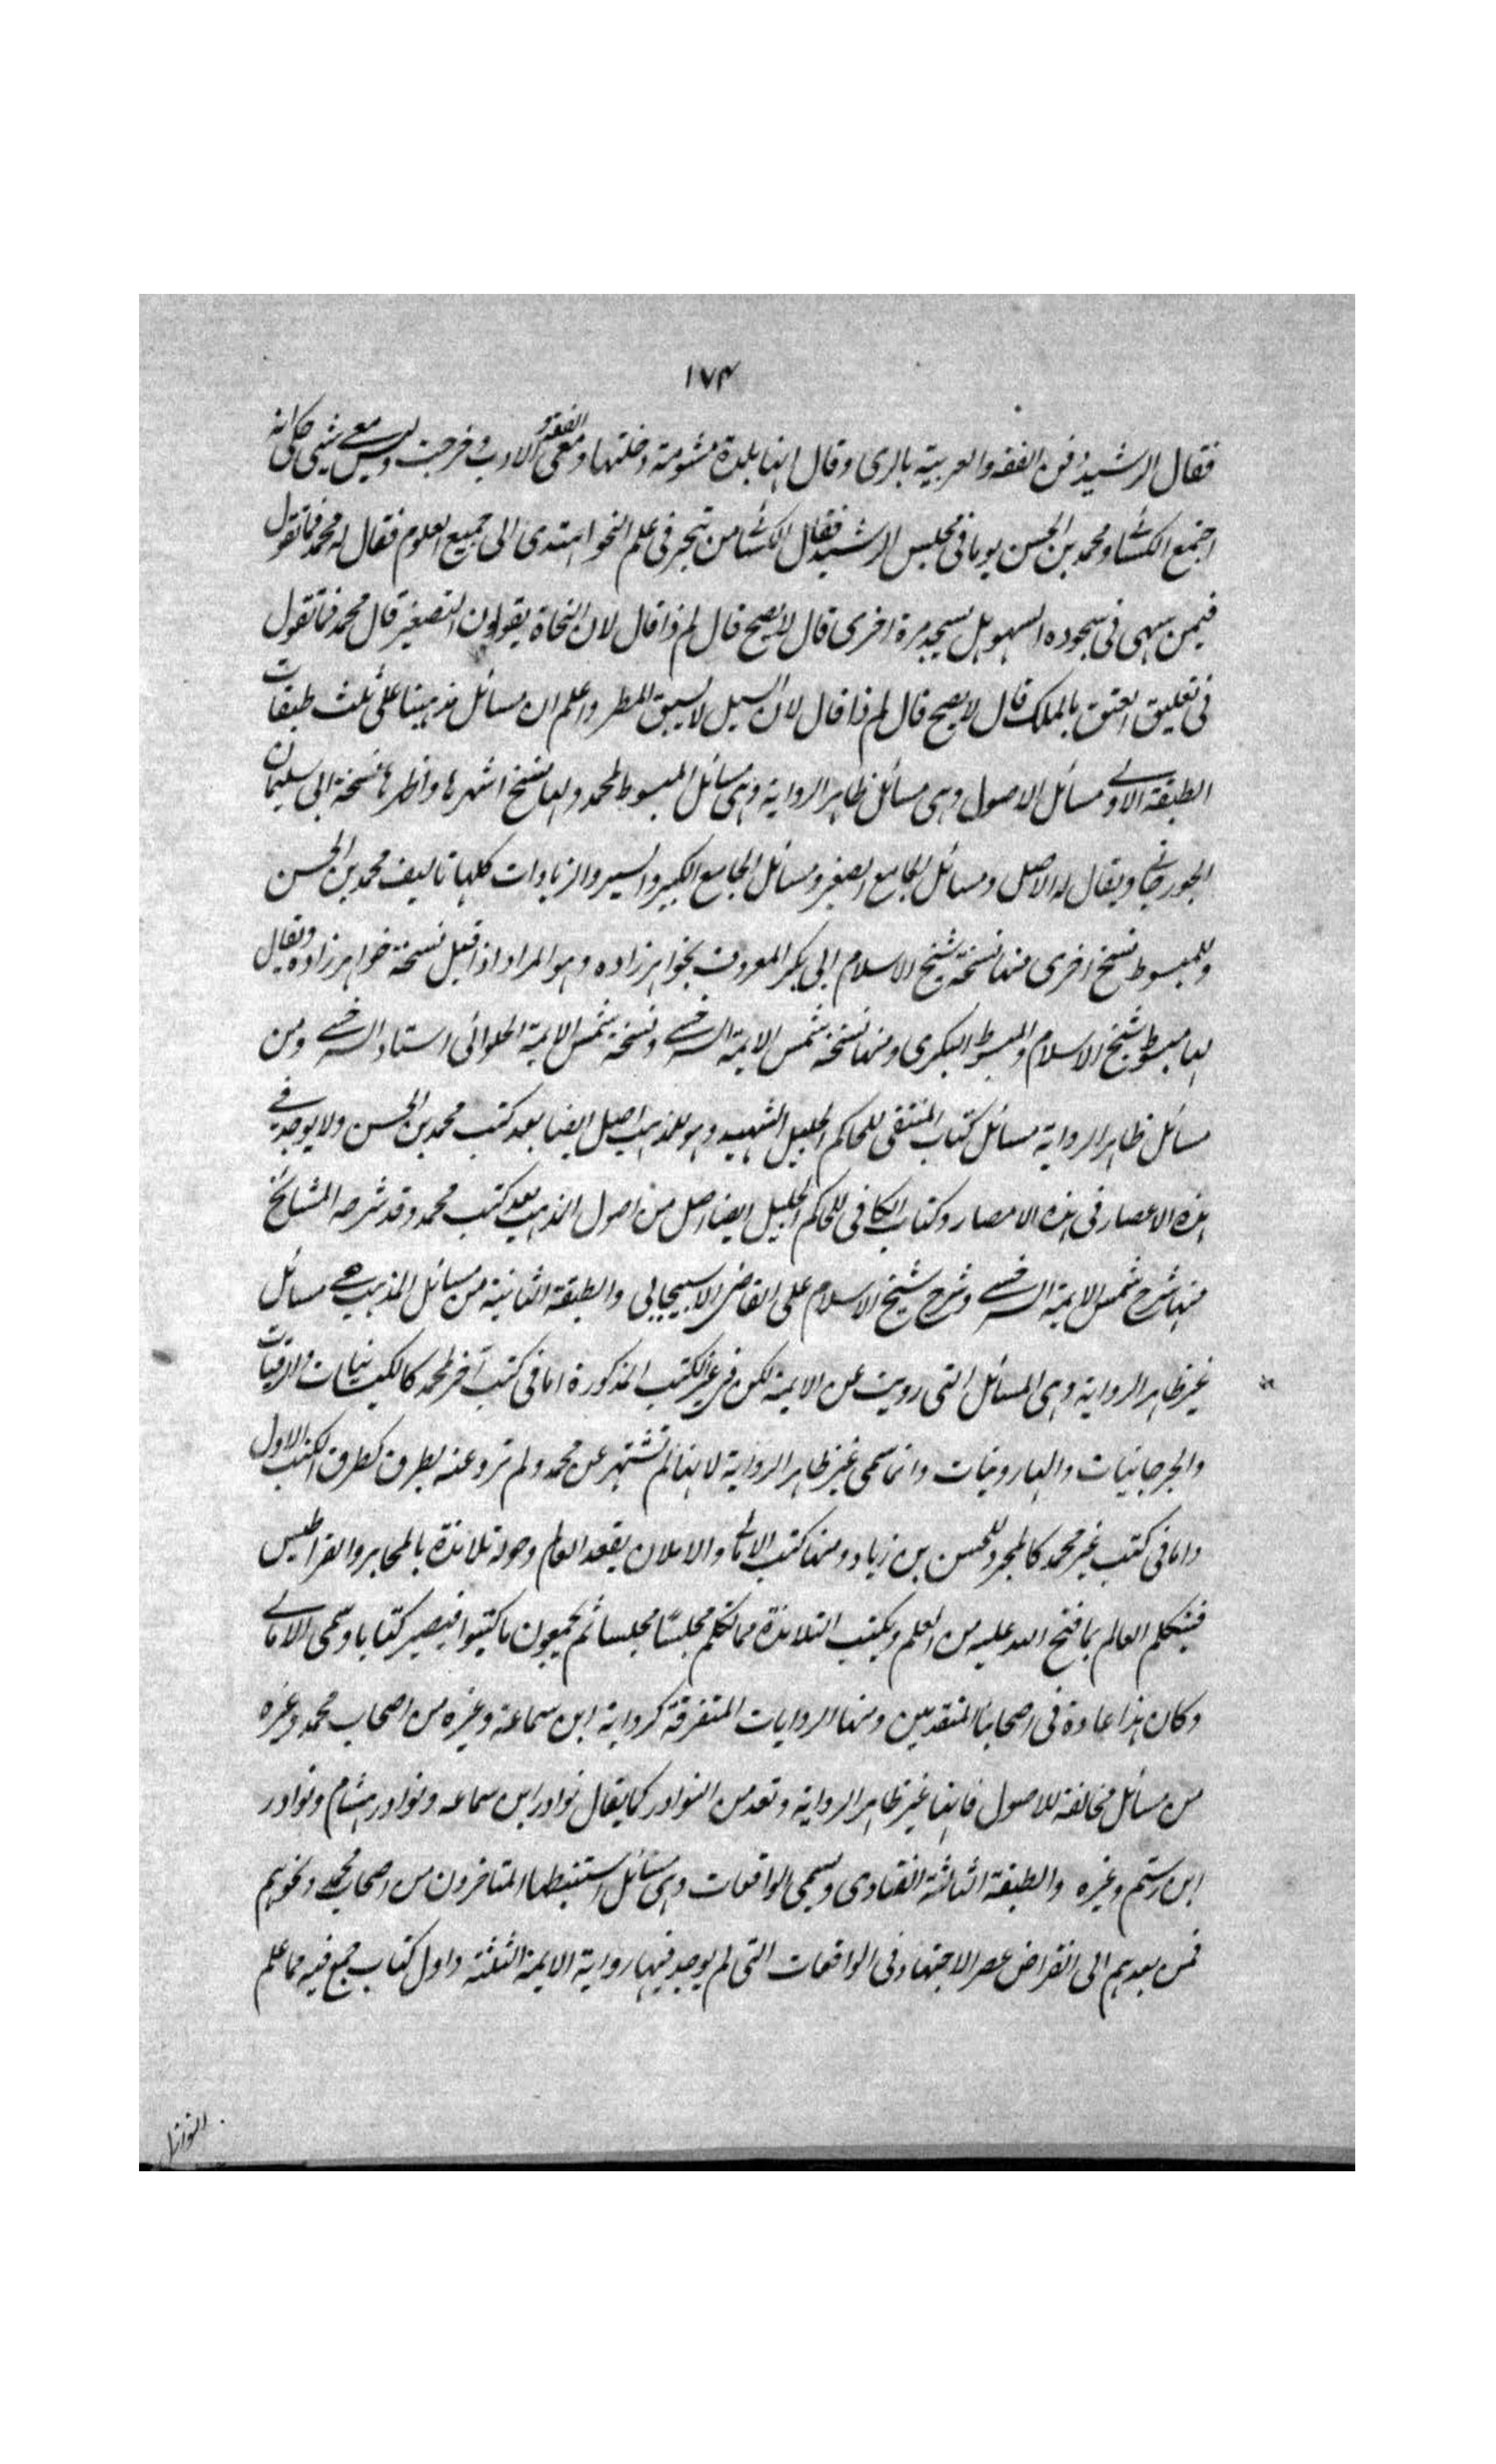 ١٧٤
فقال الرشيد دفن الفقه والعربية بالرى وقال انها بلدة مشومة دخلتها ومعى الفقه و الادب وخرجت وليس معى شيى حكى انه
اجتمع الكسائى ومحمد بن الحسن يوما فى مجلس الرشيد فقال الكسائى من تبحر فى علم النحو اهتدى الى جميع العلوم فقال له محمد فما تقول
فيمن سهى فى سجوده السهو هل يسجد مرة اخرى قال لا يصح قال لم ذا قال لان النحاة يقولون التصغير قال محمد فما تقول
فى تعليق العتق بالملك قال لا يصح قال لم ذا قال لان السيل لا يسبق المطر واعلم ان مسائل مذهبنا على ثلث طبقات
الطبقة الاولى مسائل الاصول وهى مسائل ظاهر الرواية وهى مسائل المبسوط لمحمد ولها نسخ اشهرها واظهرها نسخة ابى سليمان
الجورجانى ويقال له الاصل ومسائل الجامع الصغير ومسائل الجامع الكبير والسير والزيادات كلها تاليف محمد بن الحسن
وللمبسوط نسخ اخرى منها نسخة شيخ الاسلام ابى بكر المعروف بخواهر زاده وهو المراد اذا قيل نسخة خواهر زاده ويقال
لها مبسوط شيخ الاسلام والمبسوط البكرى ومنها نسخة شمس الايمة السرخسى ونسخة شمس الايمة الحلوائى استاد السرخسى ومن
مسائل ظاهر الرواية مسائل كتاب المنتقى للحاكم الجليل الشهيد وهو للمذهب اصل ايضا بعد كتب محمد بن الحسن ولا يوجد فى
هذه الاعصار فى هذه الامصار وكتاب الكافى للحاكم الجليل ايضا اصل من اصول المذهب بعد كتب محمد وقد شرحه المشائخ
منها شرح شمس الايمة السرخسى وشرح شيخ الاسلام على القاضى الاسبيجابى والطبقة الثانية من مسائل المذهب هى مسائل
غير ظاهر الرواية وهى المسائل التى رويت عن الايمة لكن فى غير الكتب المذكورة اما فى كتب آخر لمحمد كالكيسانيات والرقيات
والجرجانيات والهارونيات وانما سمى غير ظاهر الرواية لانها لم تشتهر عن محمد ولم ترو عنه بطرق كطرق الكتب الاول
واما فى كتب غير محمد كالمجرد للحسن بن زياد ومنها كتب الامالى والاملا ان يقعد العالم وحوله تلامذة بالمحابر والقراطيس
فيتكلم العالم بما فتح الله عليه من العلم ويكتب التلامذة مما تكلم مجلسًا مجلسا ثم يجمعون ما كتبوا فيصير كتابا وسمى الامالى
وكان هذا عادة فى اصحابنا المتقدمين ومنها الروايات المتفرقة كرواية ابن سماعة وغيره من اصحاب محمد وغيره
من مسائل مخالفة للاصول فانها غير ظاهر الرواية وتعد من النوادر كما يقال نوادر ابن سماعه ونوادر هشام ونوادر
ابن رستم وغيره والطبقة الثالثة الفتاوى ويسمى الواقعات وهى مسائل استنبطها المتاخرون من اصحاب محمد ونحوهم
فمن بعدهم الى انقراض عصر الاجتهاد فى الواقعات التى لم يوجد فيها رواية الايمة الثلثة واول كتاب جمع فيه مما علم
النوازل